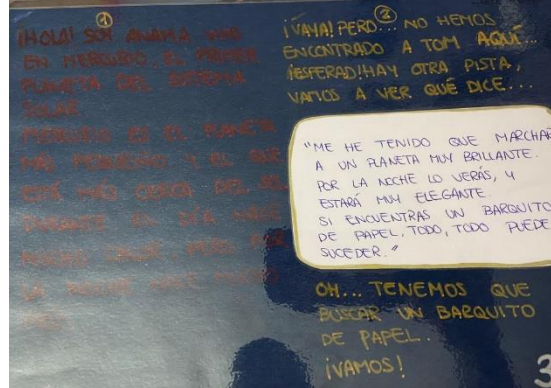 1
¡HOLA! SOY ANAMA VIVO
EN MERCURIO, EL PRIMER
PLANETA DEL SISTEMA
SOLAR.
MERCURIO ES EL PLANETA
MÁS PEQUEÑO Y EL QUE
ESTÁ MÁS CERCA DEL SOL.
DURANTE EL DÍA HACE
MUCHO CALOR PERO POR
LA NOCHE HACE MUCHO
2
¡VAYA! PERO... NO HEMOS
ENCONTRADO A TOM AQUÍ...
¡ESPERAD! ¡HAY OTRA PISTA,
VAMOS A VER QUÉ DICE...
"ME HE TENIDO QUE MARCHAR
A UN PLANETA MUY BRILLANTE.
POR LA NOCHE LO VERÁS, Y
ESTARÁ MUY ELEGANTE.
SI ENCUENTRAS UN BARQUITO
DE PAPEL, TODO, TODO PUEDE
SUCEDER."
OH... TENEMOS QUE
BUSCAR UN BARQUITO
DE PAPEL.
¡VAMOS!
3